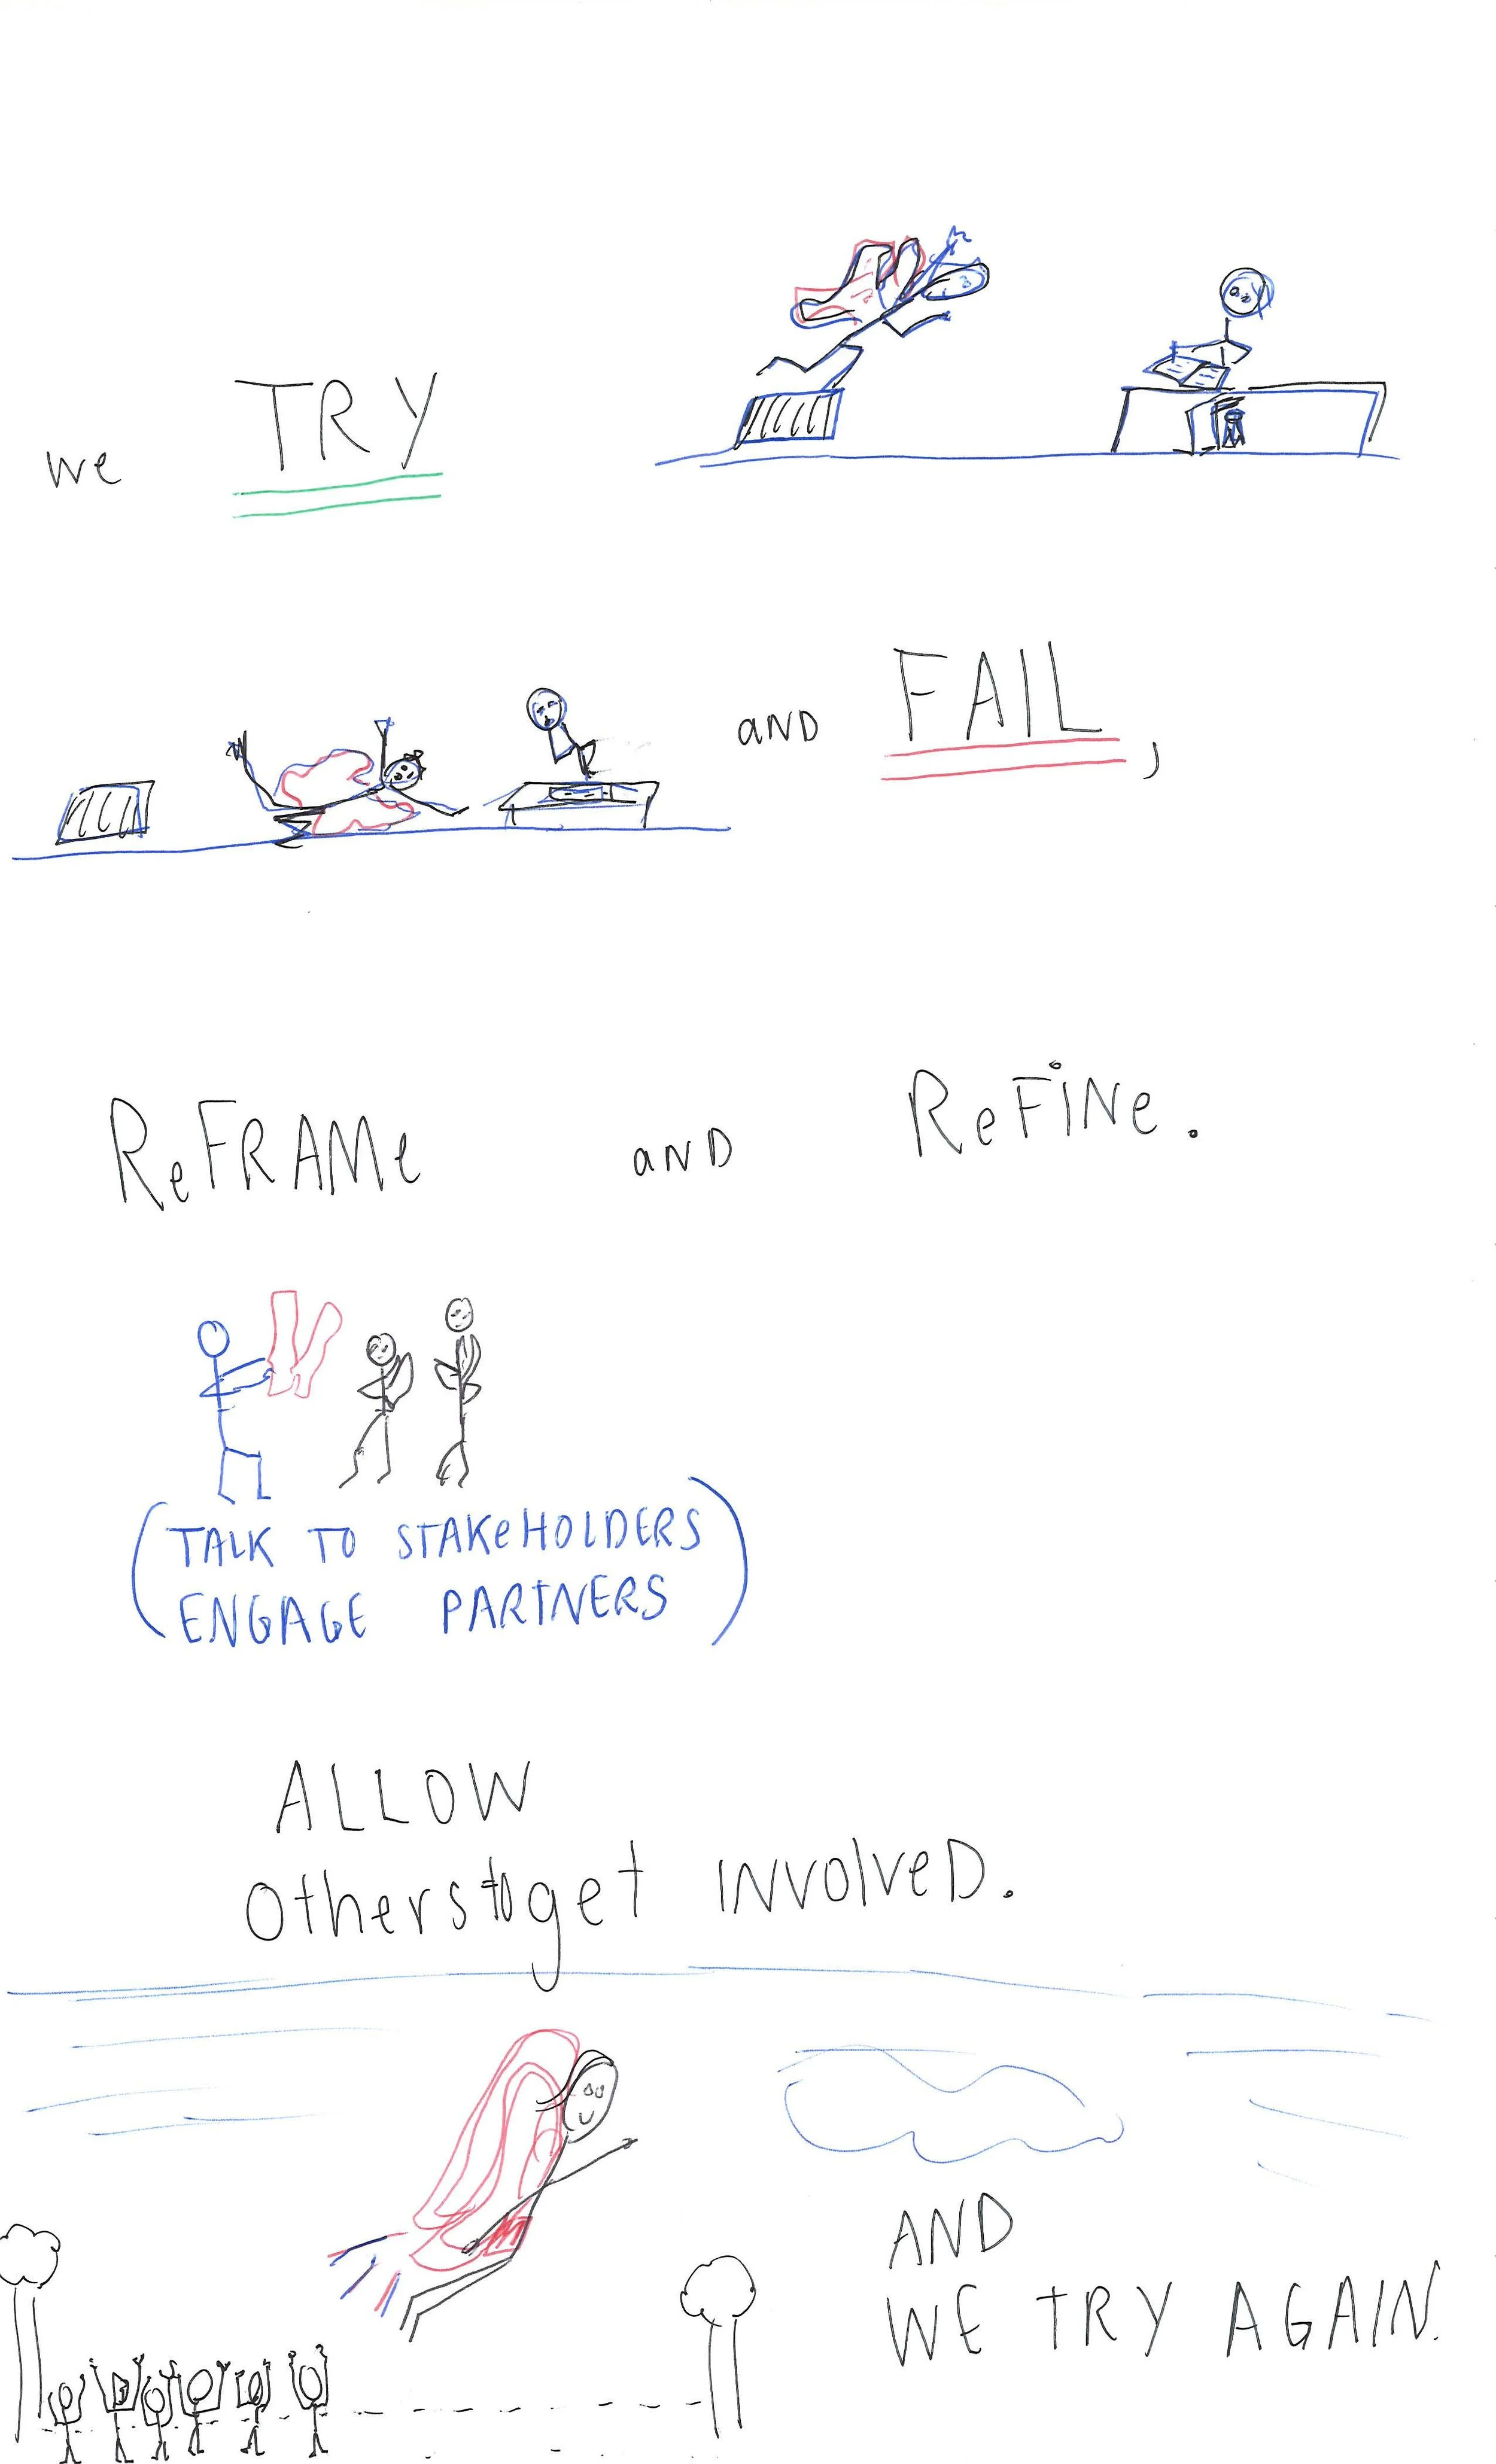 we TRY
aND FAIL,
ReFRAMe aND ReFiNe.
(TALK TO STAKeHOLDERS
ENGAGE PARTNERS)
ALLOW
Others to get INVolveD.
AND
WE TRY AGAIN.